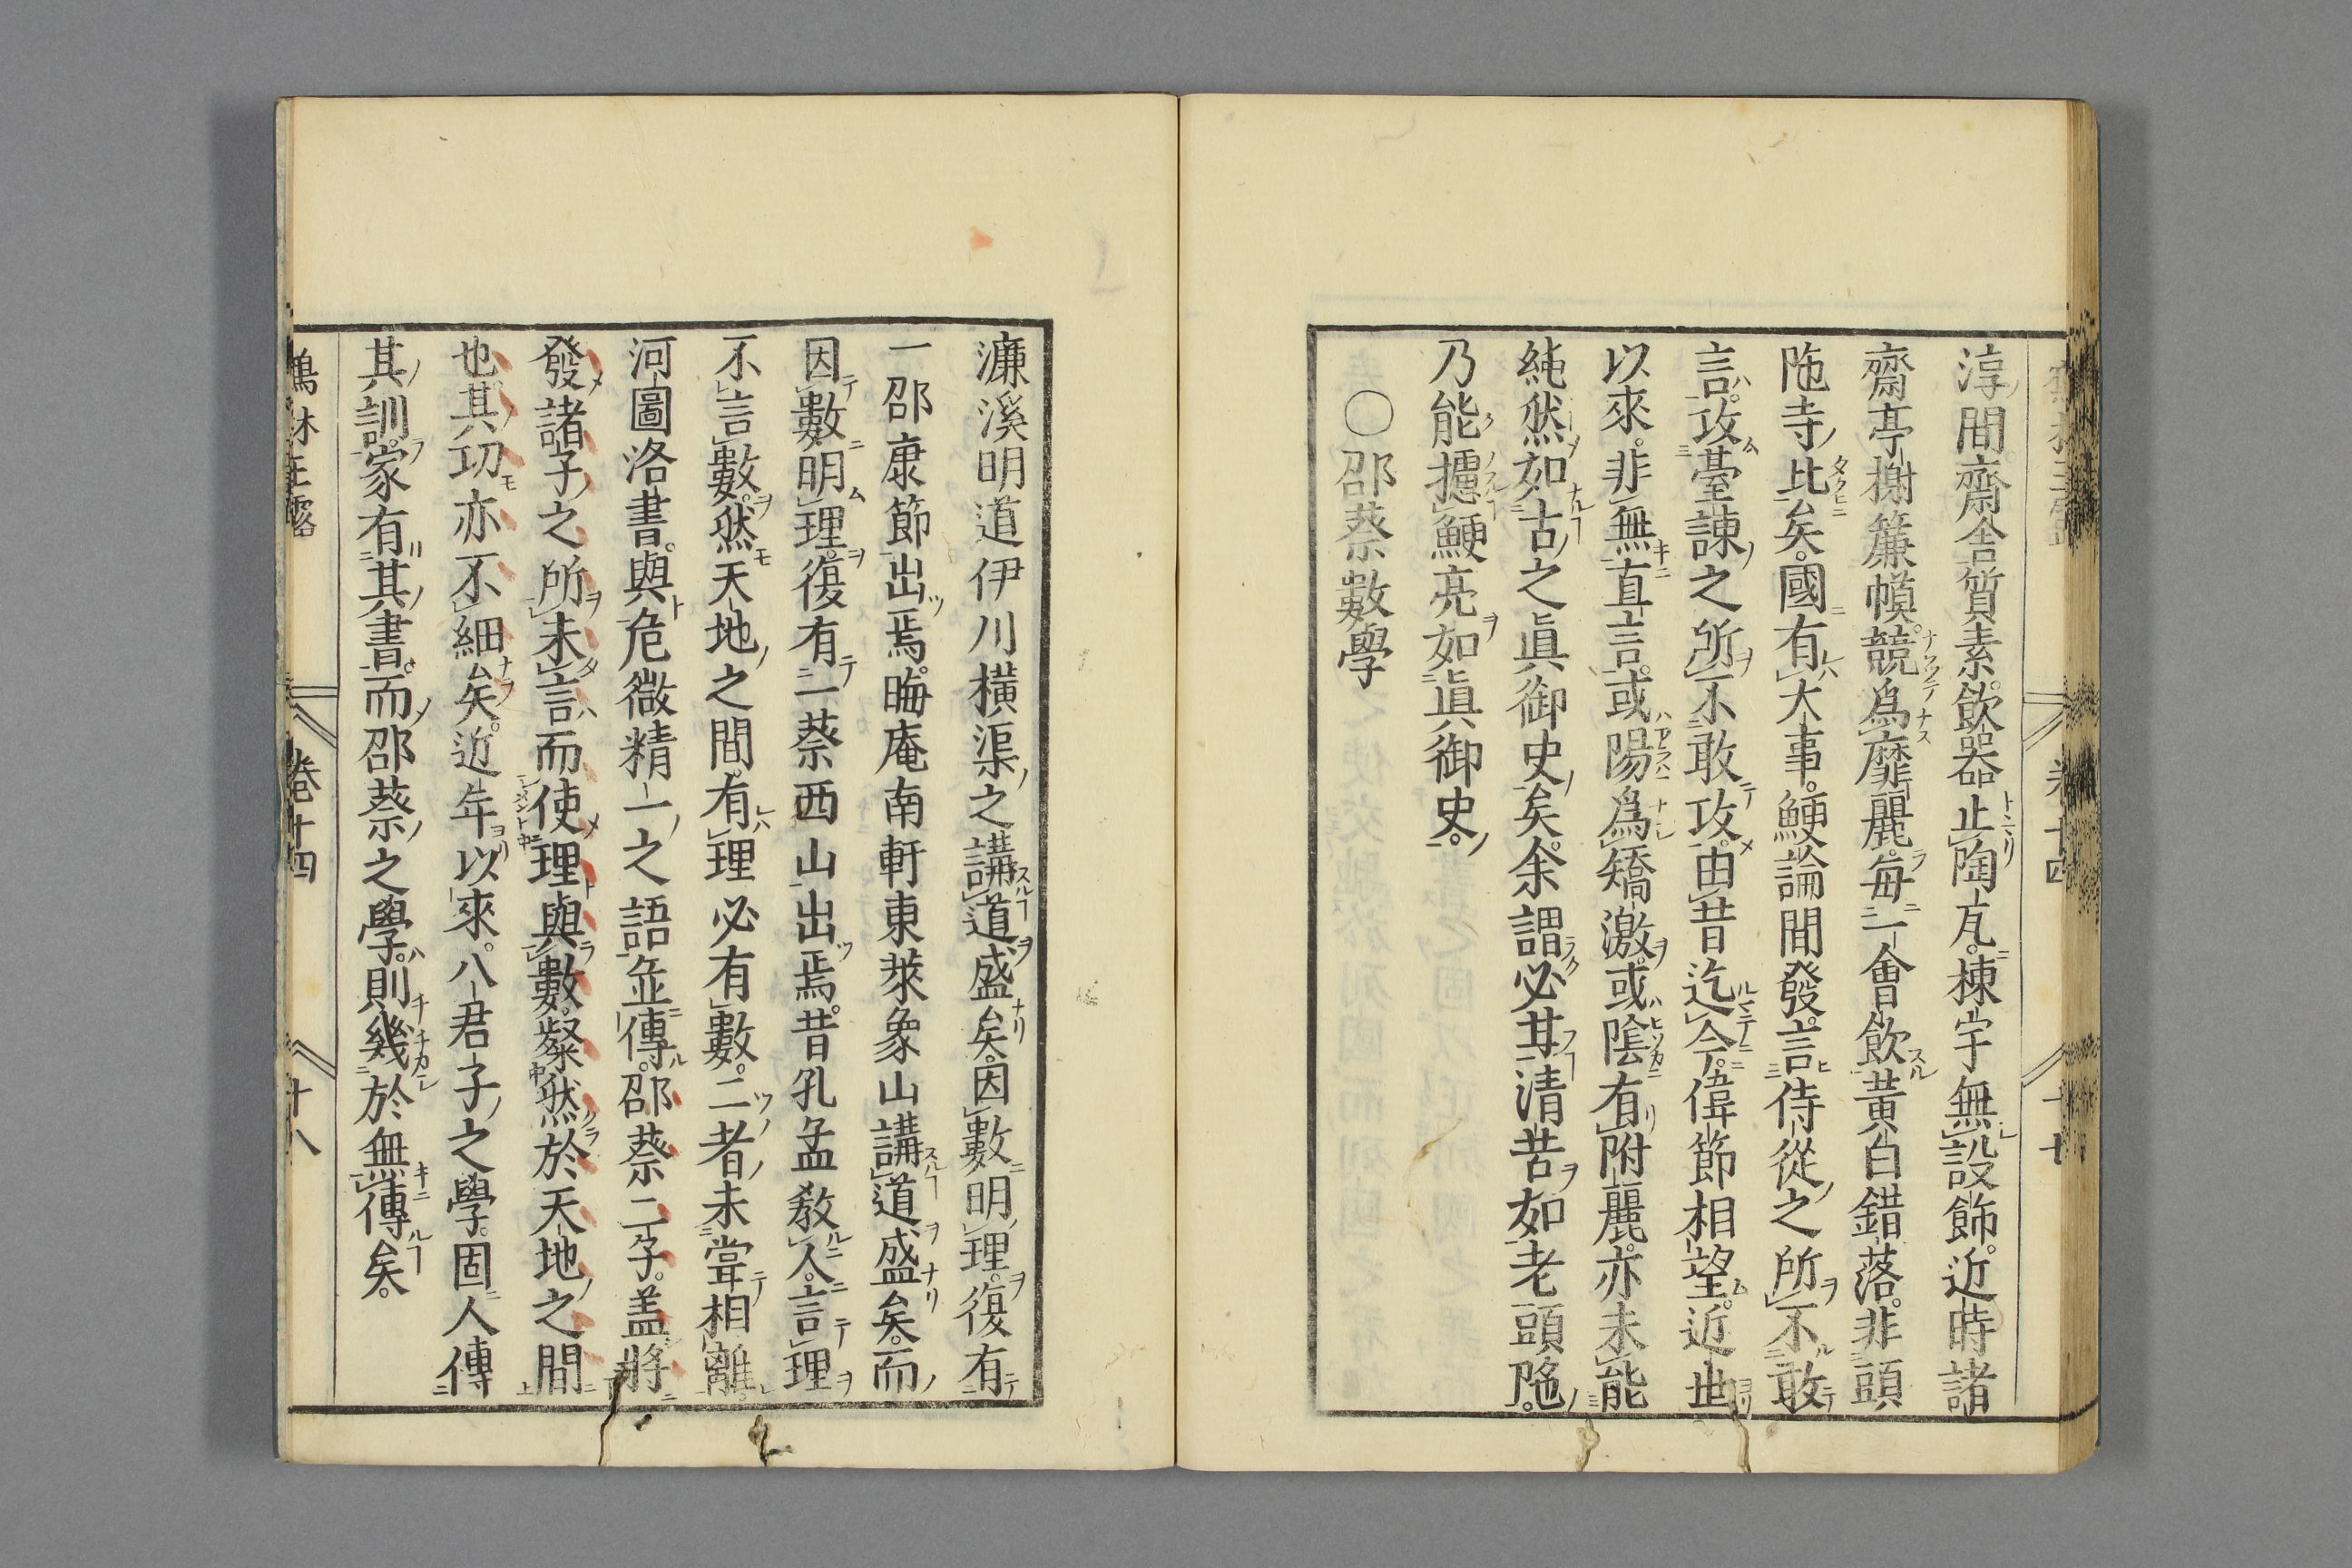 淳間齋舎質素飲器止陶瓦棟宇無設飾近時諸
齋亭榭簾幙競爲靡麗毎一會飲黃白錯落非頭
陁寺比矣國有大事鯁論間發言侍從之所不敢
言攻臺諌之所不敢攻由昔迄今偉節相望近世
以來非無直言或陽爲矯激或隂有附麗亦未能
純然如古之眞御史矣余謂必甘清苦如老頭陁
乃能攄鯁亮如眞御史
〇邵蔡數學
濂溪明道伊川橫渠之講道盛矣因數明理復有
一邵康節出焉晦庵南軒東萊象山講道盛矣而
因數明理復有一蔡西山出焉昔孔孟敎人言理
不言數然天地之間有理必有數二者未甞相離
河圖洛書與危微精一之語並傳邵蔡二子盖將
發諸子之所未言而使理與數粲然於天地之間
也其切亦不細矣近年以來八君子之學固人傳
其訓家有其書而邵蔡之學則幾於無傳矣
鶴林玉露 卷十四 十八